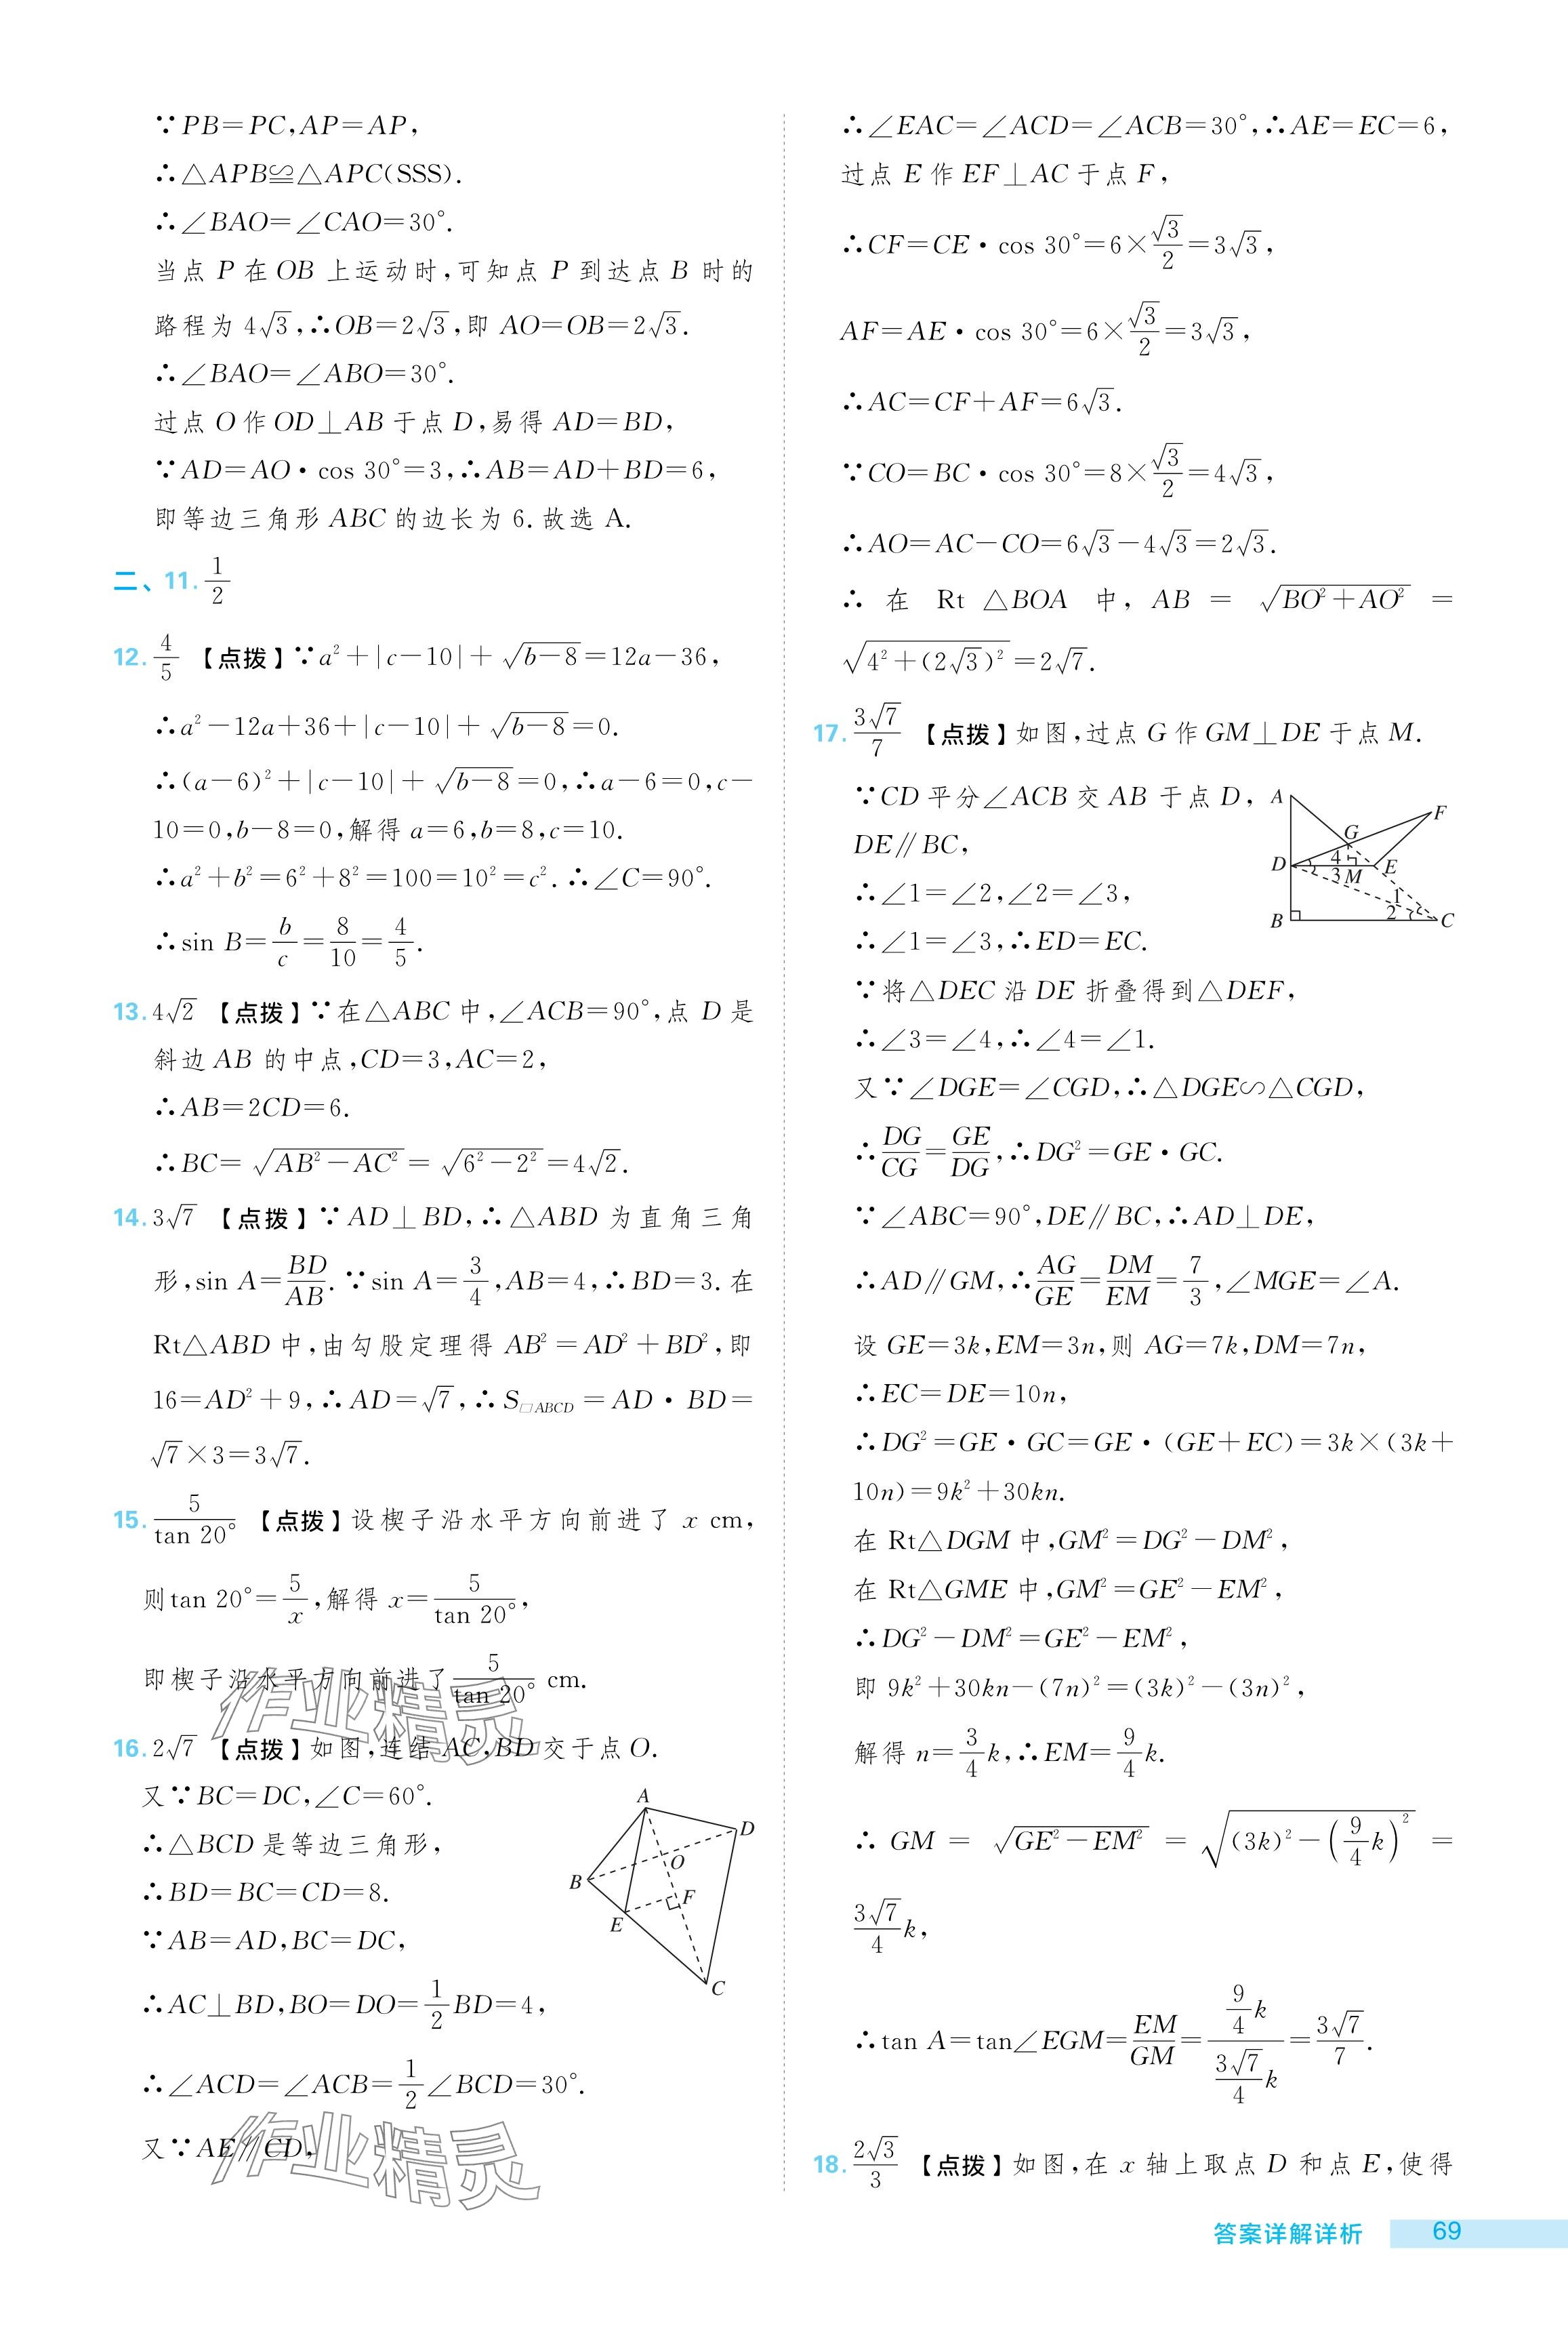 ∵PB=PC,AP=AP,
∴△APB≌△APC(SSS).
∴∠BAO=∠CAO=30°.
当点 P 在 OB 上运动时,可知点 P 到达点 B 时的
路程为 4√3,∴OB=2√3,即 AO=OB=2√3.
∴∠BAO=∠ABO=30°.
过点 O 作 OD⊥AB 于点 D,易得 AD=BD,
∵AD=AO·cos 30°=3,∴AB=AD+BD=6,
即等边三角形 ABC 的边长为 6.故选 A.
二、11. 1/2
12. 4/5 【点拨】∵a²+|c-10|+√(b-8)=12a-36,
∴a²-12a+36+|c-10|+√(b-8)=0.
∴(a-6)²+|c-10|+√(b-8)=0,∴a-6=0,c-
10=0,b-8=0,解得 a=6,b=8,c=10.
∴a²+b²=6²+8²=100=10²=c².∴∠C=90°.
∴sin B=b/c=8/10=4/5.
13. 4√2 【点拨】∵在△ABC 中,∠ACB=90°,点 D 是
斜边 AB 的中点,CD=3,AC=2,
∴AB=2CD=6.
∴BC=√(AB²-AC²)=√(6²-2²)=4√2.
14. 3√7 【点拨】∵AD⊥BD,∴△ABD 为直角三角
形,sin A=BD/AB.∵sin A=3/4,AB=4,∴BD=3.在
Rt△ABD 中,由勾股定理得 AB²=AD²+BD²,即
16=AD²+9,∴AD=√7,∴S▱ABCD=AD·BD=
√7×3=3√7.
15. 5/tan 20° 【点拨】设楔子沿水平方向前进了 x cm,
则tan 20°=5/x,解得 x=5/tan 20°,
即楔子沿水平方向前进了5/tan 20° cm.
作业精灵
16. 2√7 【点拨】如图,连结 AC,BD 交于点 O.
又∵BC=DC,∠C=60°.
∴△BCD 是等边三角形,
∴BD=BC=CD=8.
∵AB=AD,BC=DC,
∴AC⊥BD,BO=DO=1/2 BD=4,
∴∠ACD=∠ACB=1/2∠BCD=30°.
又∵AE∥CD,
A
D
O
B
F
E
C
作业精灵
∴∠EAC=∠ACD=∠ACB=30°,∴AE=EC=6,
过点 E 作 EF⊥AC 于点 F,
∴CF=CE·cos 30°=6×√3/2=3√3,
AF=AE·cos 30°=6×√3/2=3√3,
∴AC=CF+AF=6√3.
∵CO=BC·cos 30°=8×√3/2=4√3,
∴AO=AC-CO=6√3-4√3=2√3.
∴ 在 Rt △BOA 中, AB = √(BO²+AO²) =
√(4²+(2√3)²)=2√7.
17. 3√7/7 【点拨】如图,过点 G 作 GM⊥DE 于点 M.
∵CD 平分∠ACB 交 AB 于点 D,
DE∥BC,
∴∠1=∠2,∠2=∠3,
∴∠1=∠3,∴ED=EC.
A
F
G
D
4
E
3
M
1
2
B
C
∵将△DEC 沿 DE 折叠得到△DEF,
∴∠3=∠4,∴∠4=∠1.
又∵∠DGE=∠CGD,∴△DGE∽△CGD,
∴DG/CG=GE/DG,∴DG²=GE·GC.
∵∠ABC=90°,DE∥BC,∴AD⊥DE,
∴AD∥GM,∴AG/GE=DM/EM=7/3,∠MGE=∠A.
设 GE=3k,EM=3n,则 AG=7k,DM=7n,
∴EC=DE=10n,
∴DG²=GE·GC=GE·(GE+EC)=3k×(3k+
10n)=9k²+30kn.
在 Rt△DGM 中,GM²=DG²-DM²,
在 Rt△GME 中,GM²=GE²-EM²,
∴DG²-DM²=GE²-EM²,
即 9k²+30kn-(7n)²=(3k)²-(3n)²,
解得 n=3/4 k,∴EM=9/4 k.
∴ GM = √(GE²-EM²) = √((3k)²-(9/4 k)²) =
3√7/4 k,
∴tan A=tan∠EGM=EM/GM=(9/4 k)/(3√7/4 k)=3√7/7.
18. 2√3/3 【点拨】如图,在 x 轴上取点 D 和点 E,使得
答案详解详析 69